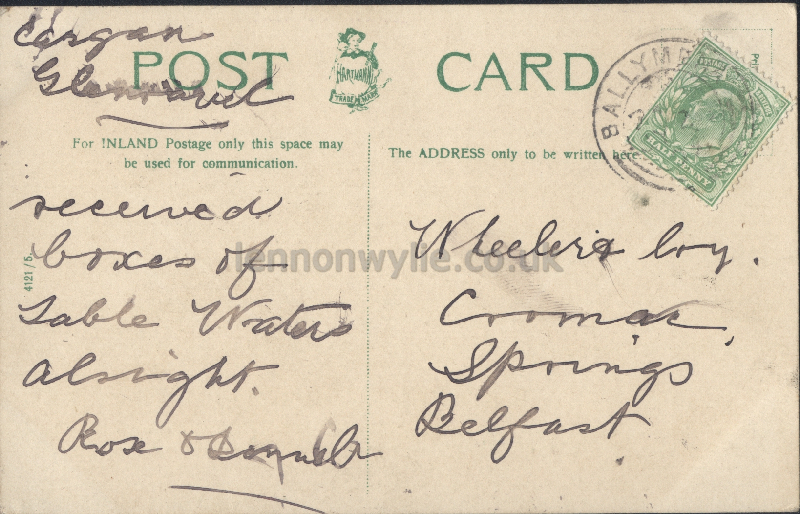 Cargan
Glenravel
POST CARD
HARTMANN
TRADE MARK
For INLAND Postage only this space may
be used for communication.
The ADDRESS only to be written here.
BALLYM
HALFPENNY
4121/5.
received
boxes of
Table Waters
alright.
Rose
Wheeler & Coy.
Cromac
Springs
Belfast
lennonwylie.co.uk